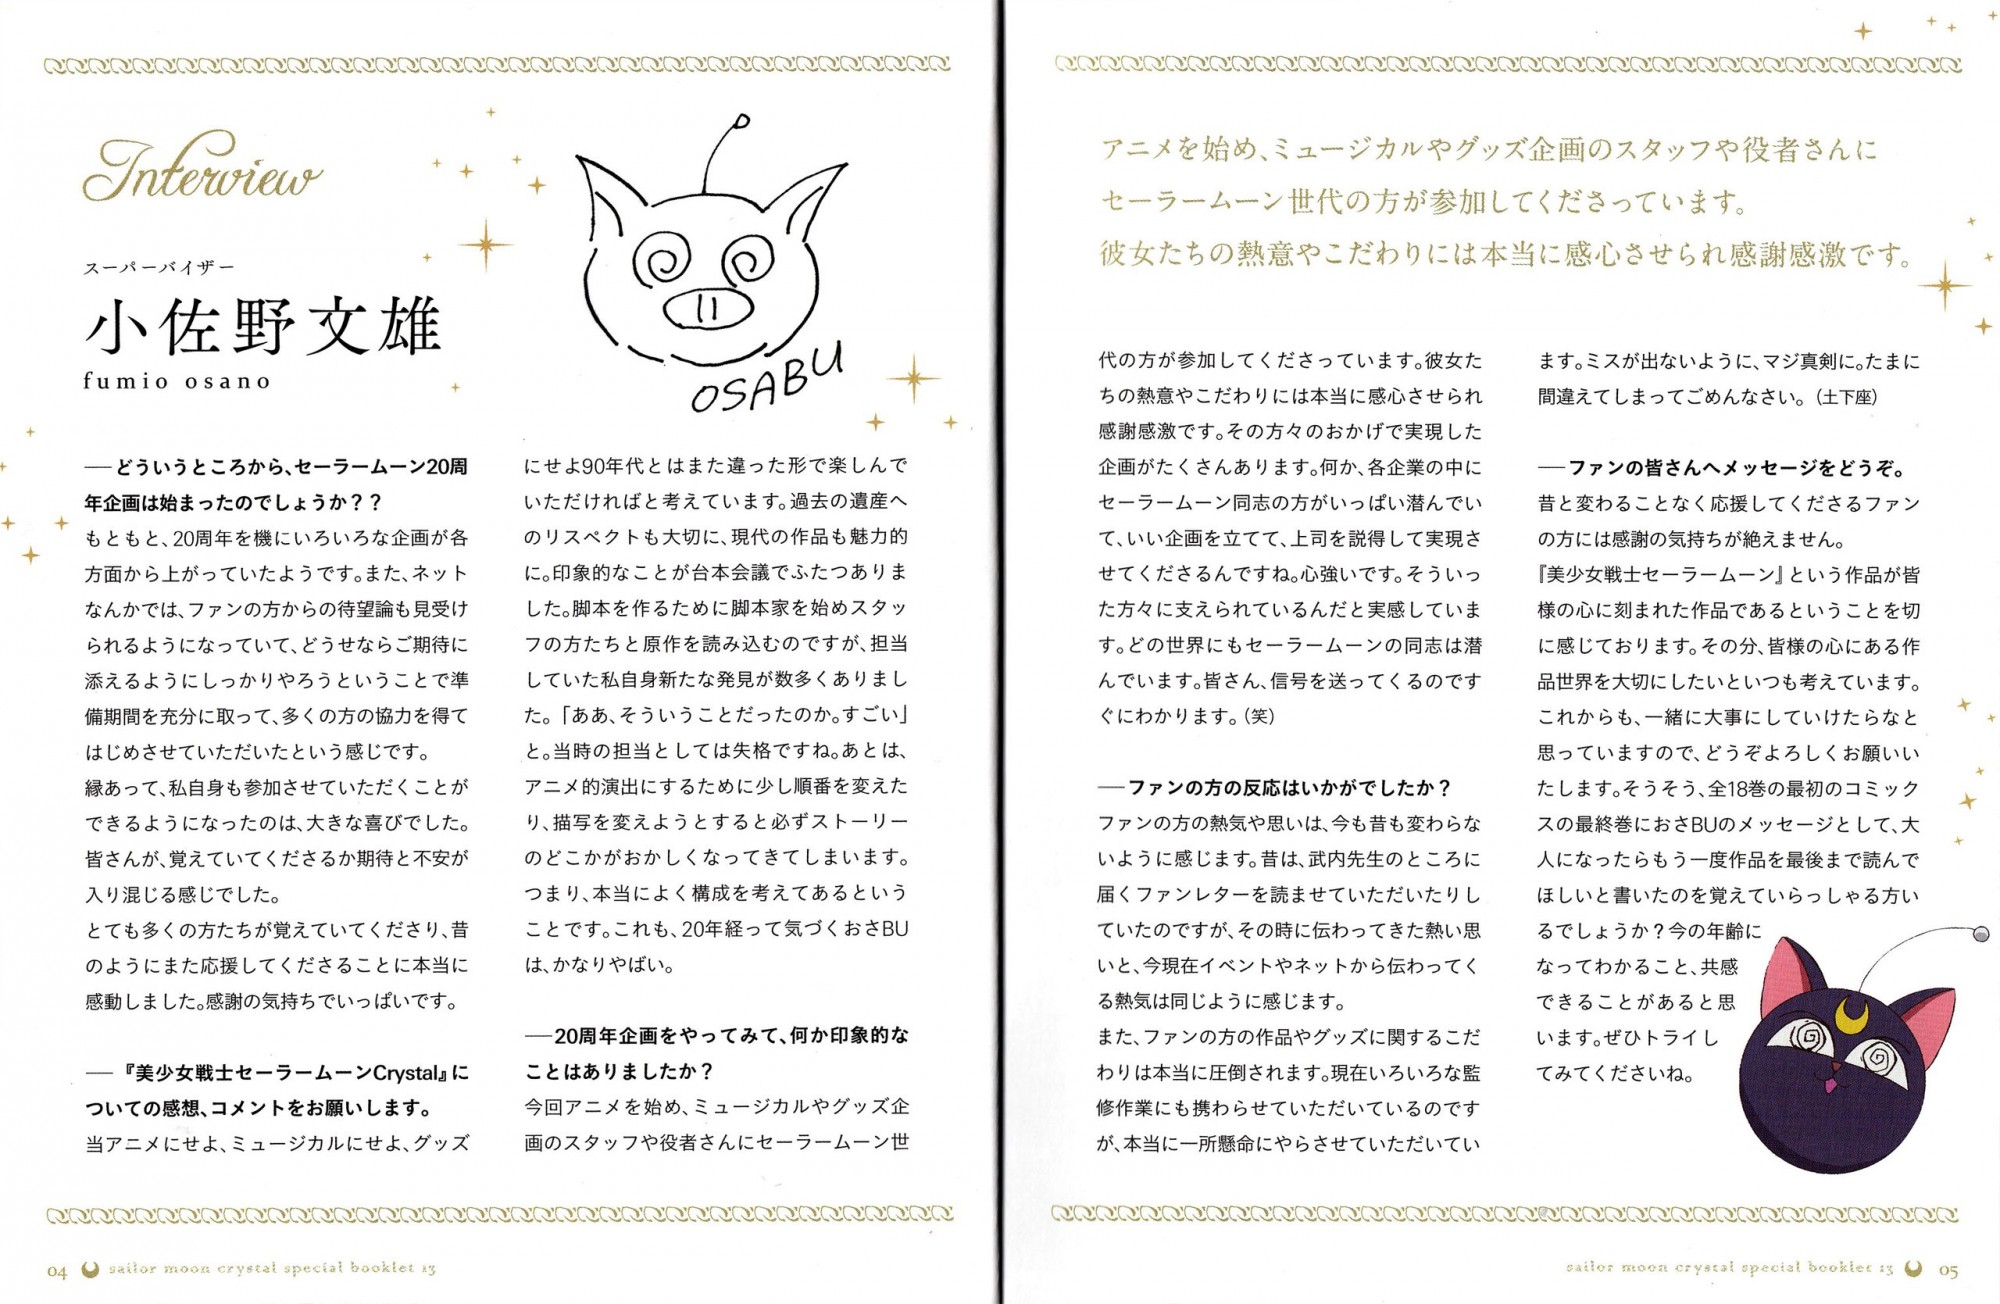 Interview
スーパーバイザー
小佐野文雄
fumio osano
OSABU
──どういうところから、セーラームーン20周
年企画は始まったのでしょうか？？
もともと、20周年を機にいろいろな企画が各
方面から上がっていたようです。また、ネット
なんかでは、ファンの方からの待望論も見受け
られるようになっていて、どうせならご期待に
添えるようにしっかりやろうということで準
備期間を充分に取って、多くの方の協力を得て
はじめさせていただいたという感じです。
縁あって、私自身も参加させていただくことが
できるようになったのは、大きな喜びでした。
皆さんが、覚えていてくださるか期待と不安が
入り混じる感じでした。
とても多くの方たちが覚えていてくださり、昔
のようにまた応援してくださることに本当に
感動しました。感謝の気持ちでいっぱいです。
──『美少女戦士セーラームーンCrystal』に
ついての感想、コメントをお願いします。
当アニメにせよ、ミュージカルにせよ、グッズ
にせよ90年代とはまた違った形で楽しんで
いただければと考えています。過去の遺産へ
のリスペクトも大切に、現代の作品も魅力的
に。印象的なことが台本会議でふたつありま
した。脚本を作るために脚本家を始めスタッ
フの方たちと原作を読み込むのですが、担当
していた私自身新たな発見が数多くありまし
た。「ああ、そういうことだったのか。すごい」
と。当時の担当としては失格ですね。あとは、
アニメ的演出にするために少し順番を変えた
り、描写を変えようとすると必ずストーリー
のどこかがおかしくなってきてしまいます。
つまり、本当によく構成を考えてあるという
ことです。これも、20年経って気づくおさBU
は、かなりやばい。
──20周年企画をやってみて、何か印象的な
ことはありましたか？
今回アニメを始め、ミュージカルやグッズ企
画のスタッフや役者さんにセーラームーン世
04 sailor moon crystal special booklet 13
アニメを始め、ミュージカルやグッズ企画のスタッフや役者さんに
セーラームーン世代の方が参加してくださっています。
彼女たちの熱意やこだわりには本当に感心させられ感謝感激です。
代の方が参加してくださっています。彼女た
ちの熱意やこだわりには本当に感心させられ
感謝感激です。その方々のおかげで実現した
企画がたくさんあります。何か、各企業の中に
セーラームーン同志の方がいっぱい潜んでい
て、いい企画を立てて、上司を説得して実現さ
せてくださるんですね。心強いです。そういっ
た方々に支えられているんだと実感していま
す。どの世界にもセーラームーンの同志は潜
んでいます。皆さん、信号を送ってくるのです
ぐにわかります。（笑）
──ファンの方の反応はいかがでしたか？
ファンの方の熱気や思いは、今も昔も変わらな
いように感じます。昔は、武内先生のところに
届くファンレターを読ませていただいたりし
ていたのですが、その時に伝わってきた熱い思
いと、今現在イベントやネットから伝わってく
る熱気は同じように感じます。
また、ファンの方の作品やグッズに関するこだ
わりは本当に圧倒されます。現在いろいろな監
修作業にも携わらせていただいているのです
が、本当に一所懸命にやらさせていただいてい
ます。ミスが出ないように、マジ真剣に。たまに
間違えてしまってごめんなさい。（土下座）
──ファンの皆さんへメッセージをどうぞ。
昔と変わることなく応援してくださるファン
の方には感謝の気持ちが絶えません。
『美少女戦士セーラームーン』という作品が皆
様の心に刻まれた作品であるということを切
に感じております。その分、皆様の心にある作
品世界を大切にしたいといつも考えています。
これからも、一緒に大事にしていけたらなと
思っていますので、どうぞよろしくお願いい
たします。そうそう、全18巻の最初のコミック
スの最終巻におさBUのメッセージとして、大
人になったらもう一度作品を最後まで読んで
ほしいと書いたのを覚えていらっしゃる方い
るでしょうか？今の年齢に
なってわかること、共感
できることがあると思
います。ぜひトライし
てみてくださいね。
sailor moon crystal special booklet 13 05